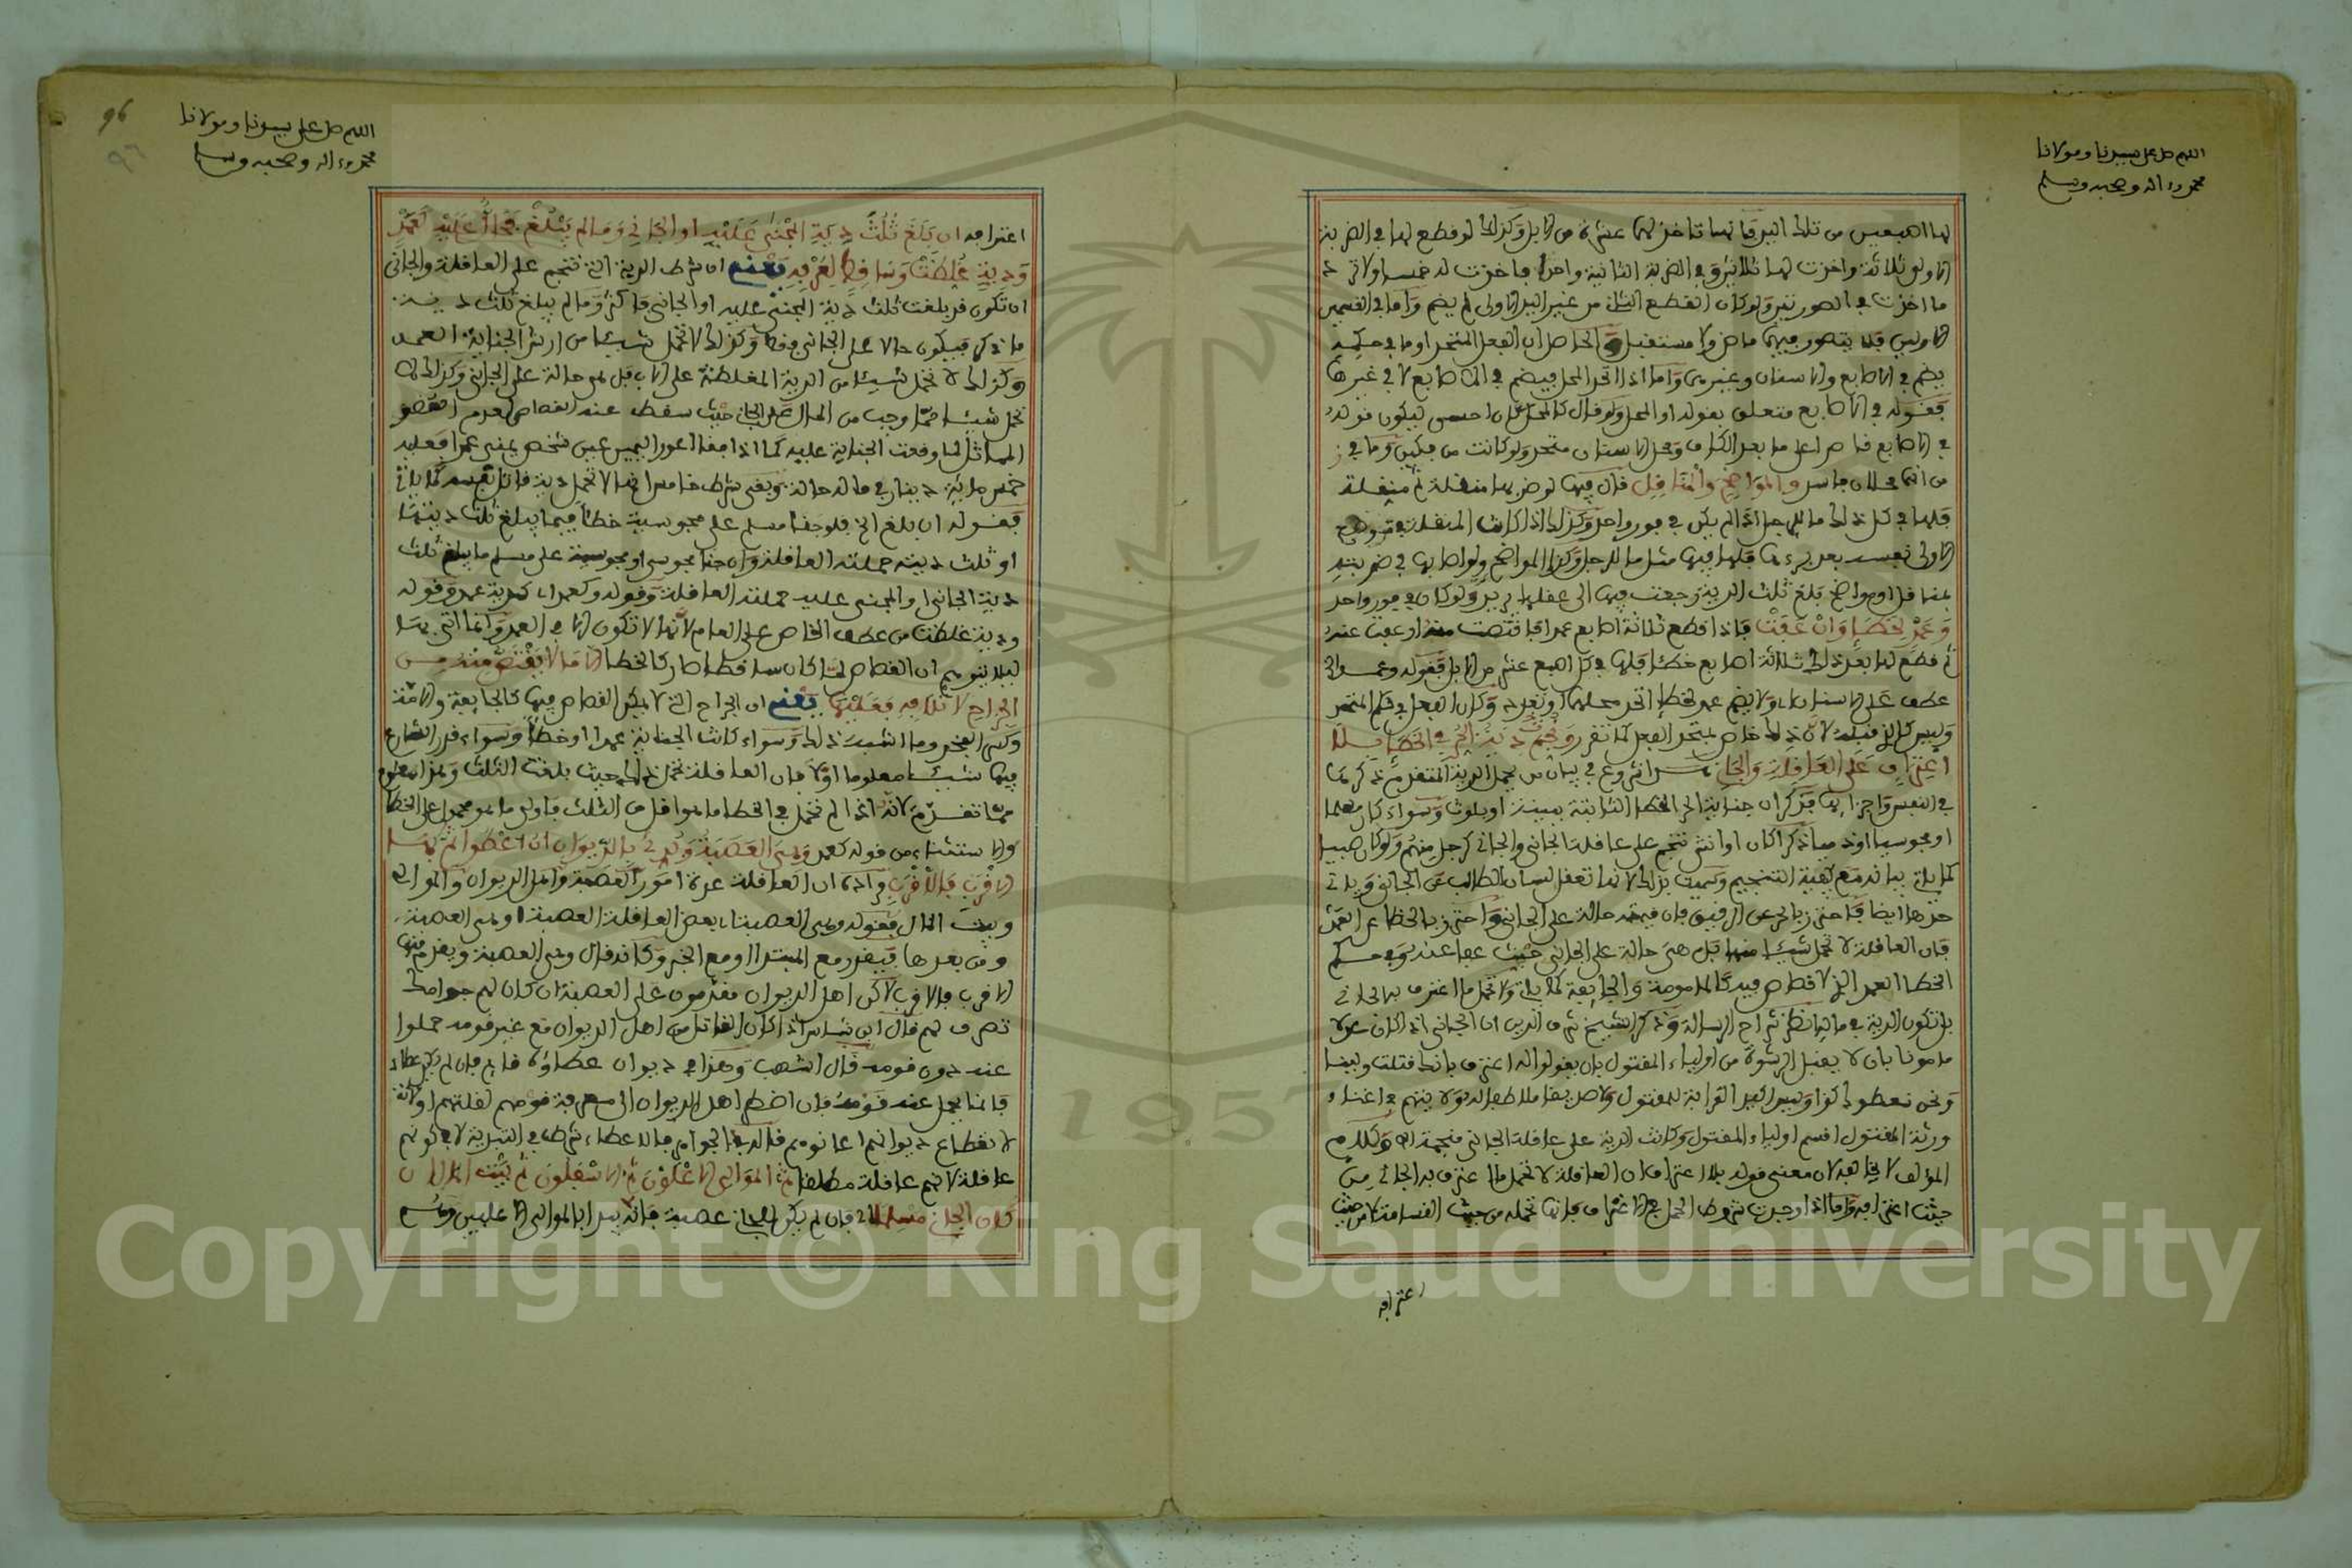 اللهم صل على سيدنا ومولانا
محمد وءاله وصحبه وسلم
لها اصبعين من تلك اليد فإنها تأخذ لهما عشرة من الإبل وكذلك لو قطع لها في الضربة
الأولى ثلاثة وأخذت لها ثلاثين وفي الضربة الثانية واحدا فأخذت له خمسا ولا ترد
ما أخذت في الصورتين ولو كان القطع الثاني من غير اليد الأولى لم يضم وأما في القسمين
الأولين فلا يتصور فيهما ماض ولا مستقبل والحاصل أن الفعل المتحد أو ما في حكمه
يضم في الأصابع والأسنان وغيرهما وأما إذا اتحد المحل فيضم في الأصابع لا في غيرها
فقوله في الأصابع متعلق بقوله أو المحل ولو قال كالمحل كان احسن ليكون قوله
في الأصابع قاصرا على ما بعد الكاف ومحل الأسنان متحد ولو كانت من فكين وما في ز
من انهما محلان فاسد والمواضح والمناقل قال فيها لو ضربها منقلة ثم منقلة
فلها في كل ذلك ما للرجل إذا لم يكن في فور واحد وكذلك إذا كانت المنقلة في موضع
الأولى نفسه بعد برءها فلها فيها مثل ما للرجل وكذا المواضح ولو أصابها في ضربته
بمناقل أو مواضح بلغ ثلث الدية رجعت فيها إلى عقلها يريد ولو كان في فور واحد
وعمد لخطإ وإن عفت فإذا قطع ثلاثة اصابع عمدا فاقتصت منه أو عفت عنه
ثم قطع لها بعد ذلك ثلاثة اصابع خطأ فلها في كل اصبع عشر من الإبل فقوله وعمد الخ
عطف على الأسنان أي ولا يضم عمد لخطإ اتحد محلهما أو تعدد وكان الفعل في حكم المتحد
وليس كالذي قبله لأن ذلك خاص بمتحد الفعل كما تقرر ونجمت دية الحر في الخطإ بلا
اعتراف على العاقلة والجاني شروع في بيان من يحمل الدية المتقدم ذكرها
في النفس وأجزائها فذكر أن جناية الحر الخطا الثابتة ببينة أو بلوث وسواء كان مسلما
أو مجوسيا أو ذميا ذكرا كان أو أنثى تنجم على عاقلة الجاني والجاني كرجل منهم ولو كان صبيا
كما يأتي بيانه مع كيفية التنجيم وسميت بذلك لأنها تعقل لسان الطالب عن الجاني ويأتي
حدها أيضا فاحترز بالحر عن الرقيق فإن قيمته حالة على الجاني واحترز بالخطا عن العمد
فإن العاقلة لا تحمل شيئا منها بل هي حالة على الجاني حيث عفا عنه وفي حكم
الخطا العمد الذي لا قصاص فيه كالمامومة والجايفة كما يأتي ولا تحمل ما اعترف به الجاني
بل تكون الدية في ماله انظر شراح الرسالة وذكر الشيخ شرف الدين أن الجاني إذا كان عدلا
مامونا بأن لا يقبل الرشوة من أولياء المقتول بأن يقولوا له اعترف بأنك قتلت ولينا
ونحن نعطوك كذا وليس أكيد القرابة للمقتول ولا صديقا ملاطفا له ولا يتهم في إغناء
ورثة المقتول أقسم أولياء المقتول وكانت الدية على عاقلة الجاني منجمة اهـ وكلام
المؤلف لا يخالفه لأن معنى قوله بلا اعتراف أن العاقلة لا تحمل ما اعترف به الجاني من
حيث اعترافه وأما إذا وجدت شروط الحمل مع الاعتراف فإنها تحمله من حيث القسامة لا من حيث
اعترافه
96
٩٦
اللهم صل على سيدنا ومولانا
محمد وءاله وصحبه وسلم
اعترافه ان بلغ ثلث دية المجني عليه أو الجاني وما لم يبلغ فحال عليه كعمد
ودية غلظت وساقط لعدمه يعني ان شرط الدية التي تنجم على العاقلة والجاني
ان تكون قد بلغت ثلث دية المجني عليه أو الجاني فاكثر وما لم يبلغ ثلث دية
ما ذكر فيكون حالا على الجاني فقط وكذلك لا تحمل شيئا من ارش الجناية العمد
وكذلك لا تحمل شيئا من الدية المغلظة على الأب بل هو حالة على الجاني وكذلك لا
تحمل شيئا مما وجب من المال على الجاني حيث سقط عنه القصاص لعدم العضو
المماثل لما وقعت الجناية عليه كما إذا فقأ أعور اليمين عين شخص يمنى عمدا فعليه
خمسماية دينار في ماله حالة وبقي شرط خامس انها لا تحمل دية قاتل نفسه كما يأتي
فقوله ان بلغ الخ فلو جنا مسلم على مجوسية خطا فيما يبلغ ثلث ديتها
أو ثلث ديته حملته العاقلة وإن جنا مجوسي أو مجوسية على مسلم ما يبلغ ثلث
دية الجاني أو المجني عليه حملته العاقلة وقوله وكعمد أي كدية عمد وقوله
ودية غلظت من عطف الخاص على العام لأنها لا تكون إلا في العمد وإنما أتى بها
ليلا يتوهم أن القصاص لما كان ساقطا صار كالخطا إلا ما لا يقتص منه من
الجراح لإتلافه فعليها يعني ان الجراح التي لا يمكن القصاص فيها كالجايفة والآمة
وكسر الفخذ وما اشبه ذلك وسواء كانت الجناية عمدا أو خطأ وسواء قدر الشارع
فيها شيئا معلوما أولا فان العاقلة تحمل ذلك حيث بلغت الثلث وهذا معلوم
مما تقدم لأنه إذا لم تحمل في الخطا ما هو اقل من الثلث فأولى ما هو محمول على الخطا
والاستثناء من قوله كعمد وهي العصبة وبدئ بالديوان ان اعطوا ثم بها
الأقرب فالأقرب وإذ ان العاقلة عدة امور العصبة وأهل الديوان والموالي
وبيت المال فقوله وهي العصبة أي بعض العاقلة العصبة أو هي العصبة
ومن بعدها فيقدر مع المبتدا أو مع الخبر وكأنه قال وهي العصبة ويقدم منها
الأقرب فالأقرب لكن اهل الديوان مقدمون على العصبة ان كان لهم جوامك
تصرف لهم قال ابن شاس إذا كان القاتل من اهل الديوان مع غير قومه حملوا
عنه دون قومه قال اشهب وهذا في ديوان عطاؤه قايم فإن لم يكن عطاء
فإنما يحمل عنه قومه فإن اضطر اهل الديوان إلى معرفة قومهم لقلتهم أو لأنه
لانقطاع ديوانهم اعانوهم قاله في الجواهر فالعطاء شرط في التبدية لا في كونهم
عاقلة لأنهم عاقلة مطلقا ثم الموالي الأعلون ثم الأسفلون ثم بيت المال ان
كان الجاني مسلما أي فإن لم يكن للجاني عصبة فإنه يبدأ بالموالي الأعليين وهم